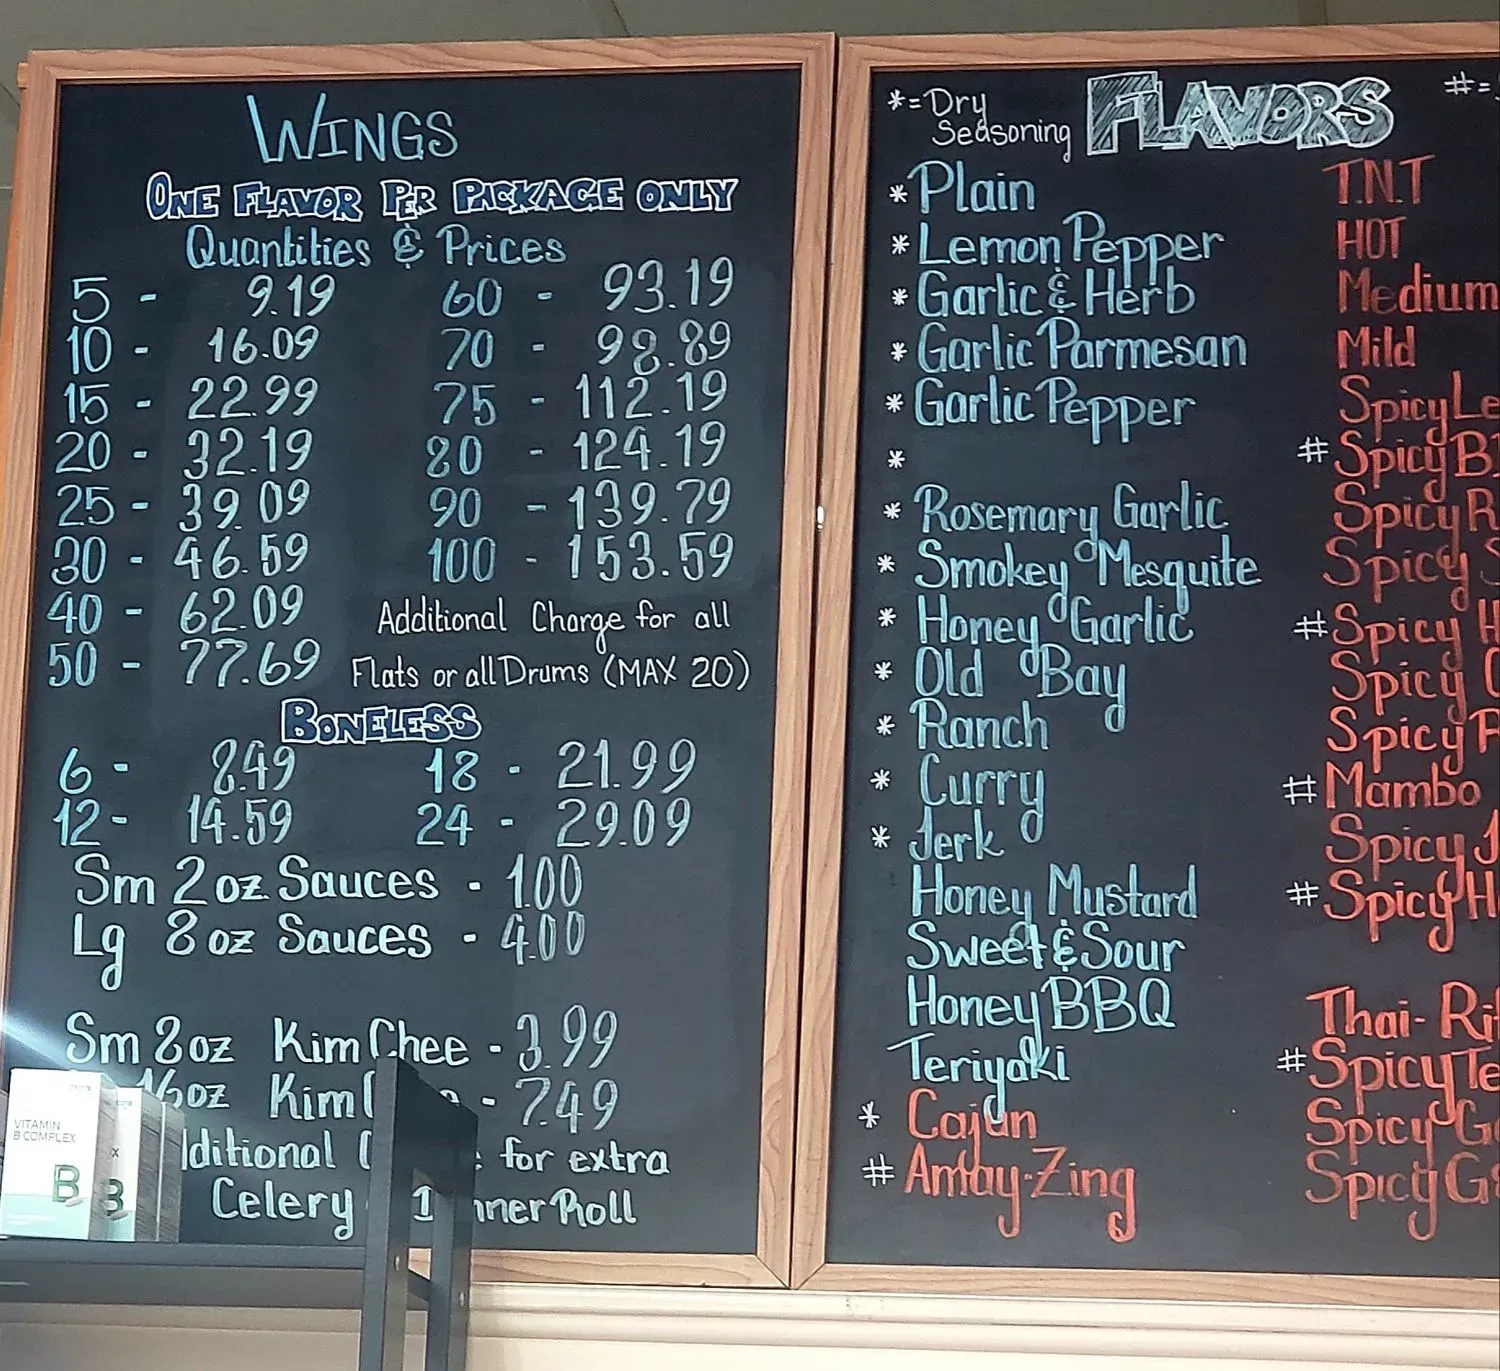 WINGS
ONE FLAVOR PER PACKAGE ONLY
Quantities & Prices
5 - 9.19 60 - 93.19
10 - 16.09 70 - 98.89
15 - 22.99 75 - 112.19
20 - 32.19 80 - 124.19
25 - 39.09 90 - 139.79
30 - 46.59 100 - 153.59
40 - 62.09
50 - 77.69
Additional Charge for all
Flats or all Drums (MAX 20)
BONELESS
6 - 8.49 18 - 21.99
12 - 14.59 24 - 29.09
Sm 2 oz Sauces - 1.00
Lg 8 oz Sauces - 4.00
Sm 8oz Kim Chee - 3.99
16oz Kim - 7.49
for extra
Celery
Roll
VITAMIN
B COMPLEX
B
*= Dry
Seasoning
FLAVORS
#=
* Plain
* Lemon Pepper
* Garlic & Herb
* Garlic Parmesan
* Garlic Pepper
*
* Rosemary Garlic
* Smokey Mesquite
* Honey Garlic
* Old Bay
* Ranch
* Curry
* Jerk
Honey Mustard
Sweet & Sour
Honey BBQ
Teriyaki
* Cajun
# Amay-Zing
T.N.T
HOT
Medium
Mild
Spicy
# Spicy
Spicy
Spicy
# Spicy
Spicy
Spicy
# Mambo
Spicy
# Spicy
Thai-
# Spicy
Spicy
Spicy